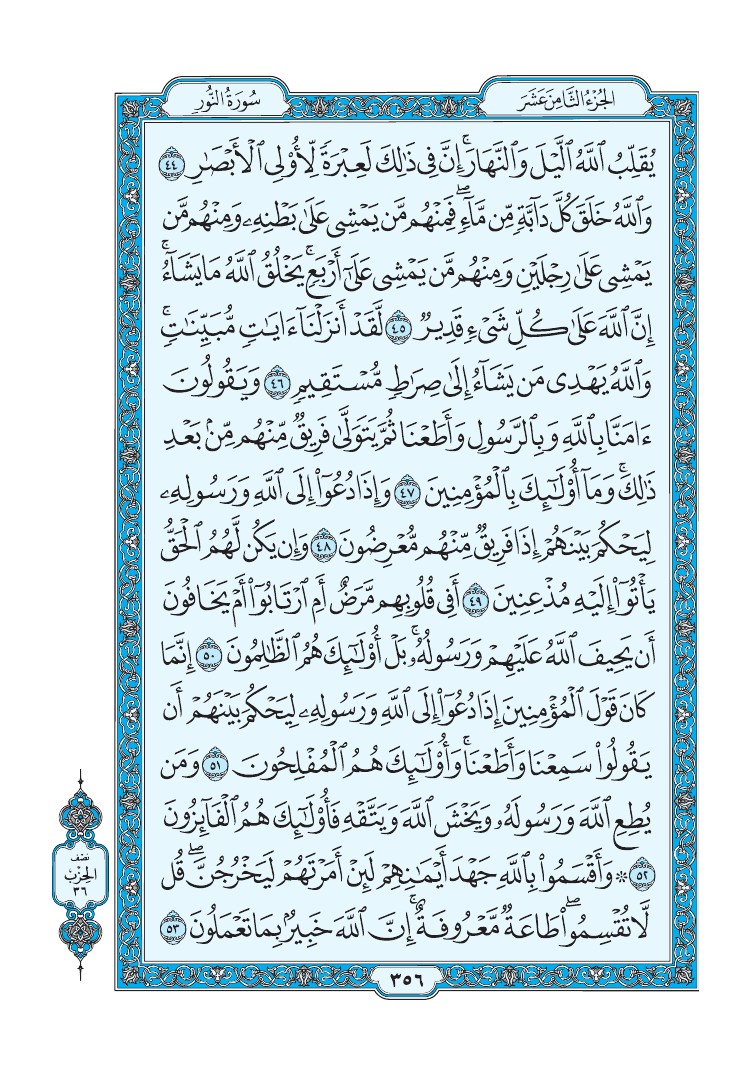 الجُزْءُ الثَّامِنَ عَشَرَ
سُورَةُ النُّور
يُقَلِّبُ ٱللَّهُ ٱلَّيْلَ وَٱلنَّهَارَۚ إِنَّ فِى ذَٰلِكَ لَعِبْرَةً لِّأُو۟لِى ٱلْأَبْصَٰرِ ٤٤
وَٱللَّهُ خَلَقَ كُلَّ دَآبَّةٍ مِّن مَّآءٍۖ فَمِنْهُم مَّن يَمْشِى عَلَىٰ بَطْنِهِۦ وَمِنْهُم مَّن
يَمْشِى عَلَىٰ رِجْلَيْنِ وَمِنْهُم مَّن يَمْشِى عَلَىٰٓ أَرْبَعٍۚ يَخْلُقُ ٱللَّهُ مَا يَشَآءُۚ
إِنَّ ٱللَّهَ عَلَىٰ كُلِّ شَىْءٍ قَدِيرٌ ٤٥ لَّقَدْ أَنزَلْنَآ ءَايَٰتٍ مُّبَيِّنَٰتٍۚ
وَٱللَّهُ يَهْدِى مَن يَشَآءُ إِلَىٰ صِرَٰطٍ مُّسْتَقِيمٍ ٤٦ وَيَقُولُونَ
ءَامَنَّا بِٱللَّهِ وَبِٱلرَّسُولِ وَأَطَعْنَا ثُمَّ يَتَوَلَّىٰ فَرِيقٌ مِّنْهُم مِّنۢ بَعْدِ
ذَٰلِكَۚ وَمَآ أُو۟لَٰٓئِكَ بِٱلْمُؤْمِنِينَ ٤٧ وَإِذَا دُعُوٓا۟ إِلَى ٱللَّهِ وَرَسُولِهِۦ
لِيَحْكُمَ بَيْنَهُمْ إِذَا فَرِيقٌ مِّنْهُم مُّعْرِضُونَ ٤٨ وَإِن يَكُن لَّهُمُ ٱلْحَقُّ
يَأْتُوٓا۟ إِلَيْهِ مُذْعِنِينَ ٤٩ أَفِى قُلُوبِهِم مَّرَضٌ أَمِ ٱرْتَابُوٓا۟ أَمْ يَخَافُونَ
أَن يَحِيفَ ٱللَّهُ عَلَيْهِمْ وَرَسُولُهُۥۚ بَلْ أُو۟لَٰٓئِكَ هُمُ ٱلظَّٰلِمُونَ ٥٠ إِنَّمَا
كَانَ قَوْلَ ٱلْمُؤْمِنِينَ إِذَا دُعُوٓا۟ إِلَى ٱللَّهِ وَرَسُولِهِۦ لِيَحْكُمَ بَيْنَهُمْ أَن
يَقُولُوا۟ سَمِعْنَا وَأَطَعْنَاۚ وَأُو۟لَٰٓئِكَ هُمُ ٱلْمُفْلِحُونَ ٥١ وَمَن
يُطِعِ ٱللَّهَ وَرَسُولَهُۥ وَيَخْشَ ٱللَّهَ وَيَتَّقْهِ فَأُو۟لَٰٓئِكَ هُمُ ٱلْفَآئِزُونَ
٥٢ ۞ وَأَقْسَمُوا۟ بِٱللَّهِ جَهْدَ أَيْمَٰنِهِمْ لَئِنْ أَمَرْتَهُمْ لَيَخْرُجُنَّۖ قُل
لَّا تُقْسِمُوا۟ۖ طَاعَةٌ مَّعْرُوفَةٌۚ إِنَّ ٱللَّهَ خَبِيرٌۢ بِمَا تَعْمَلُونَ ٥٣
نصف
الحِزْب
٣٦
٣٥٦